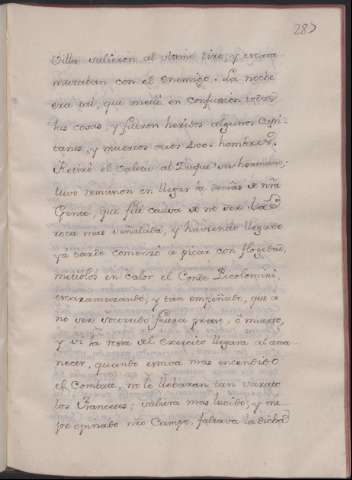 283
Villa salieron al llano tiro, y escara-
muzaban con el enemigo. La noche
era tal, que metió en confusion todas
las cosas, y fueron heridos algunos Capi-
tanes, y muertos otros 200 hombres.
Retiró el Calor al Duque su hermano,
tuvo remision en llegar la de nra
Gente, que fué causa de no ser la
rota mas señalada, y haviendo llegado
ya tarde comenzó a picar con flogedad,
metiolos en calor el Conde Picolomini,
escaramuzando, y tan empeñado, que a
no ser socorrido fuera preso, ó muerto,
y si la resta del Exercito llegara al ama-
necer, quando estava mas encendido
el Combate, no le llebaran tan varato
los Franceses; saliera mas lucido, y me-
jor opinado nro Campo. faltava la dicha